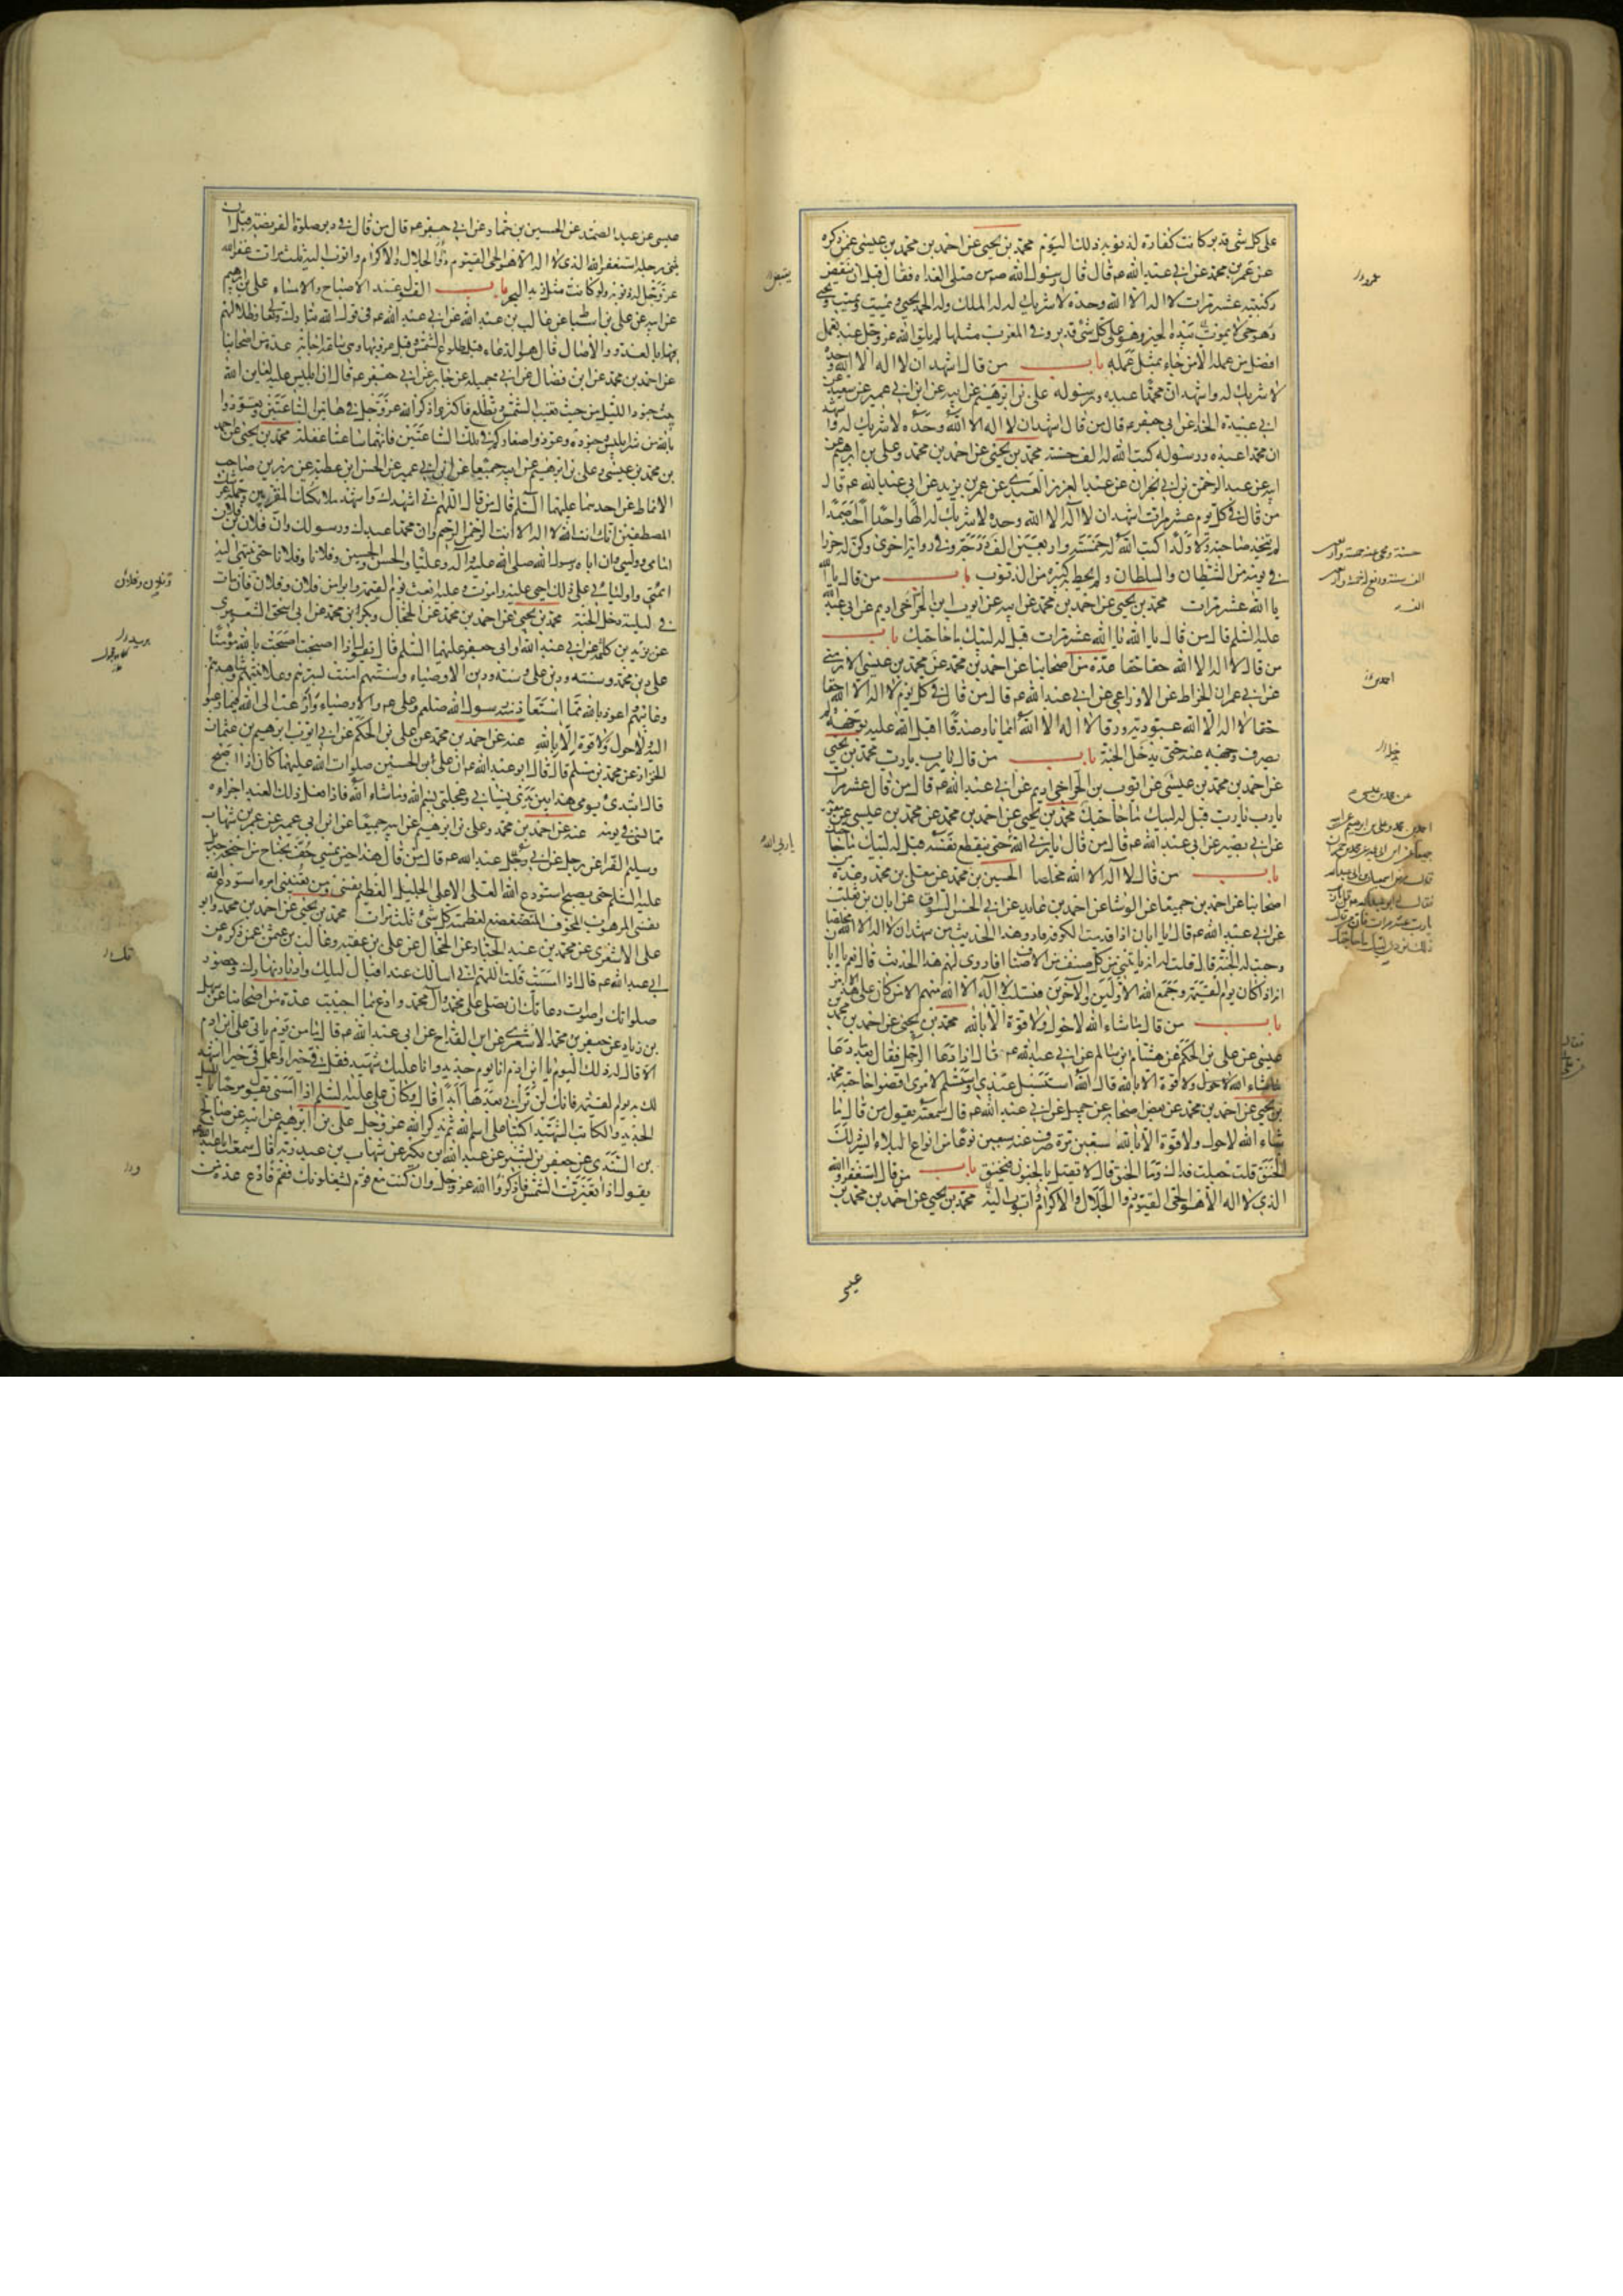 على كل شئ قدير كانت كفارة لذنوبه ذلك اليوم محمد بن يحيى عن احمد بن محمد بن عيسى عمن ذكره
عن عمر بن محمد عن ابي عبد الله عم قال قال رسول الله ص من صلى الغداة فقال قبل ان ينقض
ركبتيه عشر مرات لا اله الا الله وحده لا شريك له له الملك وله الحمد يحيي ويميت ويميت ويحيي
وهو حي لا يموت بيده الخير وهو على كل شئ قدير وفي المغرب مثلها لم يلق الله عز وجل عبد بعمل
افضل من عمله الا من جاء بمثل عمله باب من قال اشهد ان لا اله الا الله وحده
لا شريك له واشهد ان محمدا عبده ورسوله علي بن ابرهيم عن ابيه عن ابن ابي عمير عن سعيد عن
ابي عبيدة الحذاء عن ابي جعفر عم قال من قال اشهد ان لا اله الا الله وحده لا شريك له واشهد
ان محمدا عبده ورسوله كتب الله له الف حسنة محمد بن يحيى عن احمد بن محمد وعلي بن ابرهيم عن
ابيه عن عبد الرحمن بن ابي نجران عن عبد العزيز العبدي عن عمر بن يزيد عن ابي عبد الله عم قال
من قال في كل يوم عشر مرات اشهد ان لا اله الا الله وحده لا شريك له الها واحدا احدا صمدا
لم يتخذ صاحبة ولا ولدا كتب الله له خمسة واربعين الف وفي رواية اخرى وكن له حرزا
في يومه من الشيطان والسلطان ولم يحط به كبيرة من الذنوب باب من قال يا الله
يا الله عشر مرات محمد بن يحيى عن احمد بن محمد عن ابيه عن ايوب بن الحر اخي اديم عن ابي عبد الله
عليه السلم قال من قال يا الله يا الله عشر مرات قيل له لبيك ما حاجتك باب
من قال لا اله الا الله حقا حقا عدة من اصحابنا عن احمد بن محمد عن محمد بن عيسى الارمني
عن ابي عمران الخراط عن الاوزاعي عن ابي عبد الله عم قال من قال في كل يوم لا اله الا الله حقا
حقا لا اله الا الله عبودية ورقا لا اله الا الله ايمانا وصدقا اقبل الله عليه بوجهه ولم
يصرف وجهه عنه حتى يدخل الجنة باب من قال يا رب يا رب محمد بن يحيى
عن احمد بن محمد بن عيسى عن ايوب بن الحر اخي اديم عن ابي عبد الله عم قال من قال عشر مرات
يا رب يا رب قيل له لبيك ما حاجتك محمد بن يحيى عن احمد بن محمد عن محمد بن عيسى عن
عن ابي بصير عن ابي عبد الله عم قال من قال يا ربي الله حتى ينقطع نفسه قيل له لبيك ما حاجتك
باب من قال لا اله الا الله مخلصا الحسين بن محمد عن معلى بن محمد وعدة من
اصحابنا عن احمد بن جميعا عن الوشا عن احمد بن عايد عن ابي الحسن السواق عن ابان بن تغلب
عن ابي عبد الله عم قال يا ابان اذا قدمت الكوفة فارو هذا الحديث من شهد ان لا اله الا الله مخلصا
وجبت له الجنة قال قلت له انه ياتيني من كل صنف من الاصناف افاروي لهم هذا الحديث قال نعم يا ابا
ن اذا كان يوم القيمة وجمع الله الاولين والآخرين فتسلب لا اله الا الله منهم الا من كان على هذا
باب من قال ما شاء الله لا حول ولا قوة الا بالله محمد بن يحيى عن احمد بن محمد بن
عيسى عن علي بن الحكم عن هشام بن سالم عن ابي عبد الله عم قال اذا دعا الرجل فقال بعد ما دعا
ما شاء الله لا حول ولا قوة الا بالله قال الله استبسل عبدي واستسلم لامري اقضوا حاجته محمد
بن يحيى عن احمد بن محمد عن بعض اصحابه عن جميل عن ابي عبد الله عم قال سمعته يقول من قال ما
شاء الله لا حول ولا قوة الا بالله سبعين مرة صرف عنه سبعين نوعا من انواع البلاء ايسر ذلك
الخنق قلت جعلت فداك وما الخنق قال لا يعتل بالجنون فيخنق باب من قال استغفر الله
الذي لا اله الا هو الحي القيوم ذو الجلال والاكرام واتوب اليه محمد بن يحيى عن احمد بن محمد بن
عيسى
عيسى عن عبد الصمد عن الحسين بن حماد عن ابي جعفر عم قال من قال في دبر صلوة الفريضة قبل ان
يثني رجليه استغفر الله الذي لا اله الا هو الحي القيوم ذو الجلال والاكرام واتوب اليه ثلث مرات غفر الله
عز وجل له ذنوبه ولو كانت مثل زبد البحر باب القول عند الاصباح والامساء علي بن ابرهيم
عن ابيه عن علي بن اسباط عن غالب بن عبد الله عن ابي عبد الله عم في قول الله تبارك وتعالى وظلالهم
بالغدو والآصال قال هو الدعاء قبل طلوع الشمس وقبل غروبها وهي ساعة اجابة عدة من اصحابنا
عن احمد بن محمد عن ابن فضال عن ابي جميلة عن جابر عن ابي جعفر عم قال ان ابليس عليه لعاين الله
يبث جنود الليل من حيث تغيب الشمس وتطلع فاكثروا ذكر الله عز وجل في هاتين الساعتين وتعوذوا
بالله من شر ابليس وجنوده وعوذوا صغاركم في تلك الساعتين فانهما ساعتا غفلة محمد بن يحيى عن احمد
بن محمد بن عيسى وعلي بن ابرهيم عن ابيه جميعا عن ابن ابي عمير عن الحسن ابن عطية عن رزين صاحب
الانماط عن احدهما عليهما السلم قال من قال اللهم اني اشهدك واشهد ملائكتك المقربين وحملة عرشك
المصطفين انك انت الله لا اله الا انت الرحمن الرحيم وان محمدا عبدك ورسولك وان فلان بن فلان
امامي ووليي وان اباه رسول الله صلى الله عليه وآله وعليا والحسن والحسين وفلانا وفلانا حتى ينتهي اليه
ائمتي واوليائي على ذلك احيى وعليه اموت وعليه ابعث يوم القيمة وابرا من فلان وفلان فان مات
في ليلته دخل الجنة محمد بن يحيى عن احمد بن محمد عن الحجال وبكر ابن محمد عن ابي اسحق الشعيري
عن يزيد بن كلثمة عن ابي عبد الله او ابي جعفر عليهما السلم قال تقول اذا اصبحت اصبحت بالله مؤمنا
على دين محمد وسنته ودين علي وسنته ودين الاوصياء وسنتهم آمنت بسرهم وعلانيتهم وشاهدهم
وغائبهم اعوذ بالله مما استعاذ منه رسول الله صلعم وعلي عم والاوصياء وارغب الى الله فيما رغبوا
اليه ولا حول ولا قوة الا بالله عنه عن احمد بن محمد عن علي بن الحكم عن ابي ايوب ابرهيم بن عثمان
الخزاز عن محمد بن مسلم قال قال ابو عبد الله عم ان علي بن الحسين صلوات الله عليهما كان اذا اصبح
قال ابتدئ يومي هذا بين يدي نسياني وعجلتي بسم الله وما شاء الله فاذا فعل ذلك العبد اجزاه
مما نسي في يومه عنه عن احمد بن محمد وعلي بن ابرهيم عن ابيه جميعا عن ابن ابي عمير عن عمر بن شهاب
وسليم الفرا عن رجل عن ابي عبد الله عم قال من قال هذا حين يمسي حف بجناح من اجنحة جبرئيل
عليه السلم حتى يصبح استودع الله العلي الاعلى الجليل العظيم نفسي ومن يعنيني امره استودع الله
نفسي المرهوب المخوف المتضعضع لعظمته كل شئ ثلث مرات محمد بن يحيى عن احمد بن محمد وابو
علي الاشعري عن محمد بن عبد الجبار عن الحجال عن علي بن عقبة وغالب بن عثمن عمن ذكره عن
ابي عبد الله عم قال اذا امسيت قلت اللهم اني اسالك عند اقبال ليلك وادبار نهارك وحضور
صلواتك واصوات دعاتك ان تصلي على محمد وآل محمد وادع بما احببت عدة من اصحابنا عن سهل
بن زياد عن جعفر بن محمد الاشعري عن ابن القداح عن ابي عبد الله عم قال ما من يوم ياتي على ابن ادم
الا قال له ذلك اليوم يا ابن ادم انا يوم جديد وانا عليك شهيد فقل في خيرا واعمل في خيرا اشهد
لك به يوم القيمة فانك لن تراني بعدها ابدا قال وكان علي عليه السلم اذا امسى يقول مرحبا بالليل
الجديد والكاتب الشهيد اكتبا على اسم الله ثم يذكر الله عز وجل علي بن ابرهيم عن ابيه عن صالح
بن السندي عن جعفر بن بشير عن عبد الله بن بكير عن شهاب بن عبد ربه قال سمعت ابا عبد الله
يقول اذا تغيرت الشمس فاذكروا الله عز وجل وان كنت مع قوم يشغلونك فقم فادع عدة من